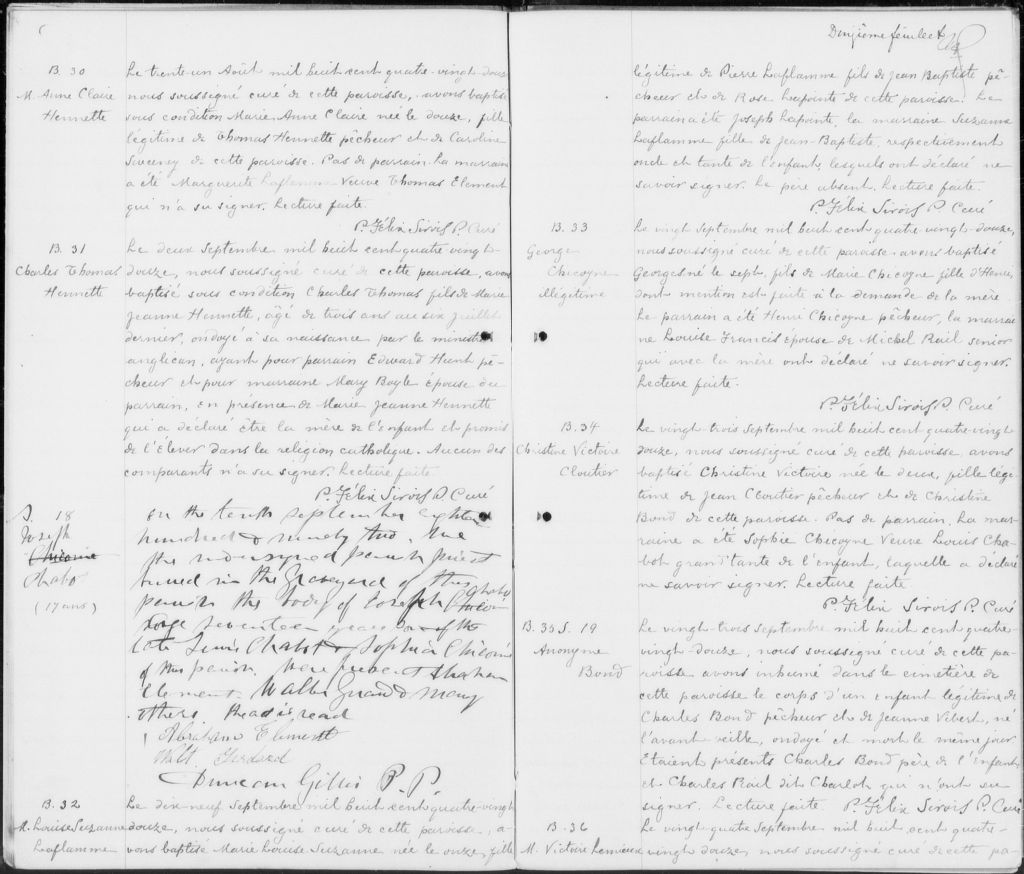 B. 30
M. Anne Claire
Hennette
Le trente-un Août mil huit cent quatre-vingt-douze
nous soussigné curé de cette paroisse, avons baptisé
sous condition Marie Anne Claire née le douze, fille
légitime de Thomas Hennette pêcheur et de Caroline
Sweeney de cette paroisse. Pas de parrain. La marraine
a été Marguerite Laflamme Veuve Thomas Element
qui n'a su signer. Lecture faite.
P. Félix Sirois P. Curé
B. 31
Charles Thomas
Hennette
Le deux Septembre mil huit cent quatre vingt-
douze, nous soussigné curé de cette paroisse, avons
baptisé sous condition Charles Thomas fils de Marie
Jeanne Hennette, âgé de trois ans au six juillet
dernier, ondoyé à sa naissance par le ministre
anglican, ayant pour parrain Edward Hunt pê-
cheur et pour marraine Mary Boyle épouse du
parrain, en présence de Marie Jeanne Hennette
qui a déclaré être la mère de l'enfant et promis
de l'élever dans la religion catholique. Aucun des
comparants n'a su signer. Lecture faite
P. Félix Sirois P. Curé
S. 18
Joseph
Chicoine
Chabot
(17 ans)
on the tenth september eighteen
hundred & ninety two. We
the undersigned parish priest
buried in the Graveyard of this
parish the body of Joseph Chicoine Chabot
seventeen years of the
late Louis Chabot & Sophia Chicoine
of this parish. Were present Abraham
Element Walter Guard & many
others. read
Abraham Element
Walt
Duncan Gillis P. P.
B. 32
M. Louise Suzanne
Laflamme
Le dix-neuf Septembre mil huit cent quatre-vingt
douze, nous soussigné curé de cette paroisse, a-
vons baptisé Marie Louise Suzanne née le onze, fille
Deuxième feuillet
légitime de Pierre Laflamme fils de Jean Baptiste pê-
cheur et de Rose Lapointe de cette paroisse. Le
parrain a été Joseph Lapointe, la marraine Suzanne
Laflamme fille de Jean-Baptiste, respectivement
oncle et tante de l'enfant, lesquels ont déclaré ne
savoir signer. Le père absent. Lecture faite.
P. Félix Sirois P. Curé
B. 33
George
Chicoyne
illégitime
Le vingt Septembre mil huit cent quatre-vingt-douze,
nous soussigné curé de cette paroisse avons baptisé
Georges né le sept, fils de Marie Chicoyne fille d'Henri,
dont mention est faite à la demande de la mère.
Le parrain a été Henri Chicoyne pêcheur, la marrai-
ne Louise Francis épouse de Michel Rail senior
qui avec la mère ont déclaré ne savoir signer.
Lecture faite.
P. Félix Sirois P. Curé
B. 34
Christine Victoire
Cloutier
Le vingt-trois Septembre mil huit cent quatre-vingt
douze, nous soussigné curé de cette paroisse, avons
baptisé Christine Victoire née le deux, fille légi-
time de Jean Cloutier pêcheur et de Christine
Bond de cette paroisse. Pas de parrain. La mar-
raine a été Sophie Chicoyne Veuve Louis Cha-
bot grand'tante de l'enfant, laquelle a déclaré
ne savoir signer. Lecture faite
P. Félix Sirois P. Curé
B. 35 S. 19
Anonyme
Bond
Le vingt-trois Septembre mil huit cent quatre-
vingt-douze, nous soussigné curé de cette pa-
roisse avons inhumé dans le cimetière de
cette paroisse le corps d'un enfant légitime de
Charles Bond pêcheur et de Jeanne Vibert, né
l'avant veille, ondoyé et mort le même jour
Etaient présents Charles Bond père de l'enfant
et Charles Rail dit Charlot qui n'ont su
signer. Lecture faite. P. Félix Sirois P. Curé
B. 36
M. Victoire Lemieux
Le vingt-quatre Septembre mil huit cent quatre-
vingt douze, nous soussigné curé de cette pa-